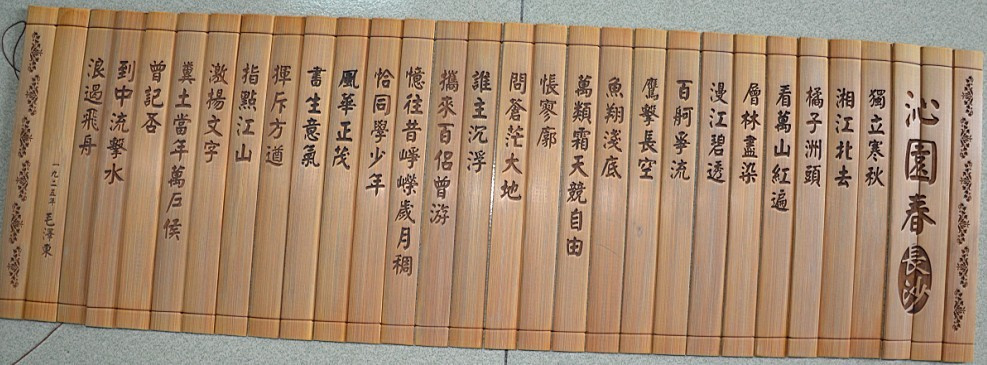 沁園春長沙
獨立寒秋
湘江北去
橘子洲頭
看萬山紅遍
層林盡染
漫江碧透
百舸爭流
鷹擊長空
魚翔淺底
萬類霜天競自由
悵寥廓
問蒼茫大地
誰主沉浮
攜來百侶曾游
憶往昔崢嶸歲月稠
恰同學少年
風華正茂
書生意氣
揮斥方遒
指點江山
激揚文字
糞土當年萬戶侯
曾記否
到中流擊水
浪遏飛舟
一九二五年 毛澤東